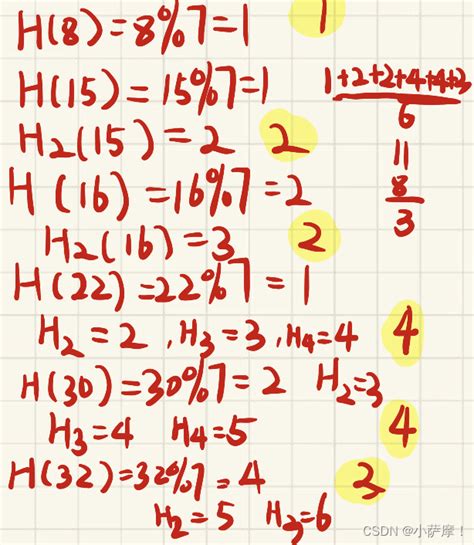 H(8)=8%7=1 1
H(15)=15%7=1
1+2+2+4+4+3
6
H2(15)=2 2
11
H(16)=16%7=2
8
3
H2(16)=3 2
H(22)=22%7=1
H2=2,H3=3,H4=4 4
H(30)=30%7=2 H2=3
H3=4 H4=5 4
H(32)=32%7=4 3
H2=5 H3=6
CSDN @小萨摩!